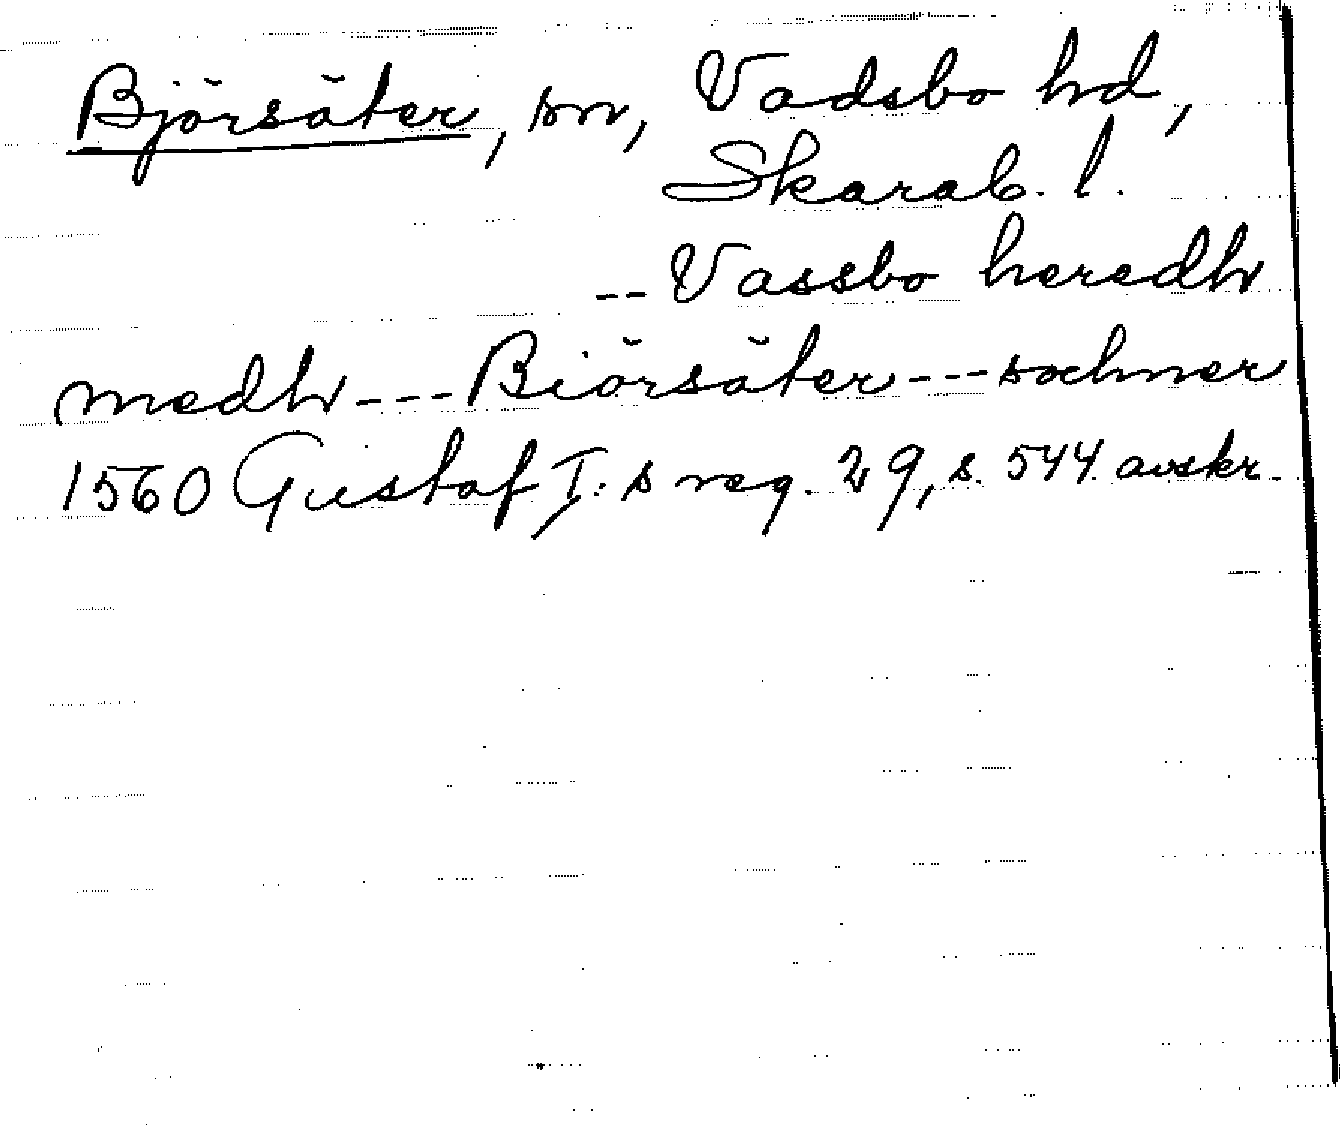 Björsäter, sn, Vadsbo hd,
Skarab. l.
-- Vassbo heredh
medh --- Biörsäter --- sochner
1560 Gustaf I:s reg. 29, s. 544 avskr.